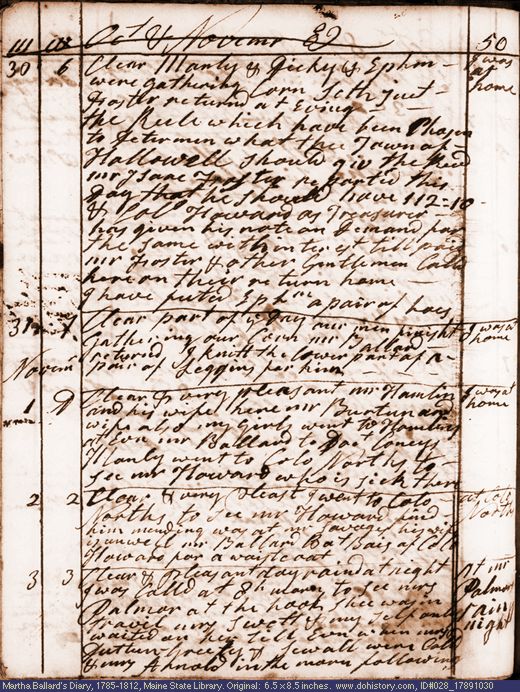 Oct & Novemr 89 50
30 6 Clear Manly & Jicky & Ephm I was
were gathering Corn Seth just at
Foster returned at Evng home
the Rule which have been Chosen
to Determin what thee Town of
Hallowell should giv the Revd
mr Isaac Foster reported this
Day that he should have 112=10
& Col Howard as Treasurer
has given his note on Demand for
the same with intrest till paid
mr Foster & other Gentlemen Calld
here on their return home
I have puted Ephm a pair of hoes
31 Clear part of ye Day our men finisht I was at
gathering our Corn mr Ballard home
returnd I knitt the lower part of a
Novm pair of Leggins for him
1 D Clear & very pleasant mr Hamlin I was at
and his wife here mr Burtun and home
wife also my girls went to Hamlins
at Evn mr Ballard to Doct Coneys
Manly went to Colo Norths to
see mr Howard who is sick there
2 2 Clear & very pleast I went to Colo at Colo
Norths to see mr Howard find North
him mending was at mr Savages his wife
is unwell mr Ballard Bot Bais of Colo
Howard for a waistcoat
3 3 Clear & Pleasant day raind at night at mr
I was Calld at 8h morn to see mrs Palmer
Palmer at the hook shee was in rain
Travil mrs Swett & my self only night
waited on her till Evn when mrs
Dutun & Sewall were Calld
& mrs Arnold in the morn following
Martha Ballard's Diary, 1785-1812, Maine State Library. Original: 6.5 x 8.5 inches. www.dohistory.com, ID#028_17891030